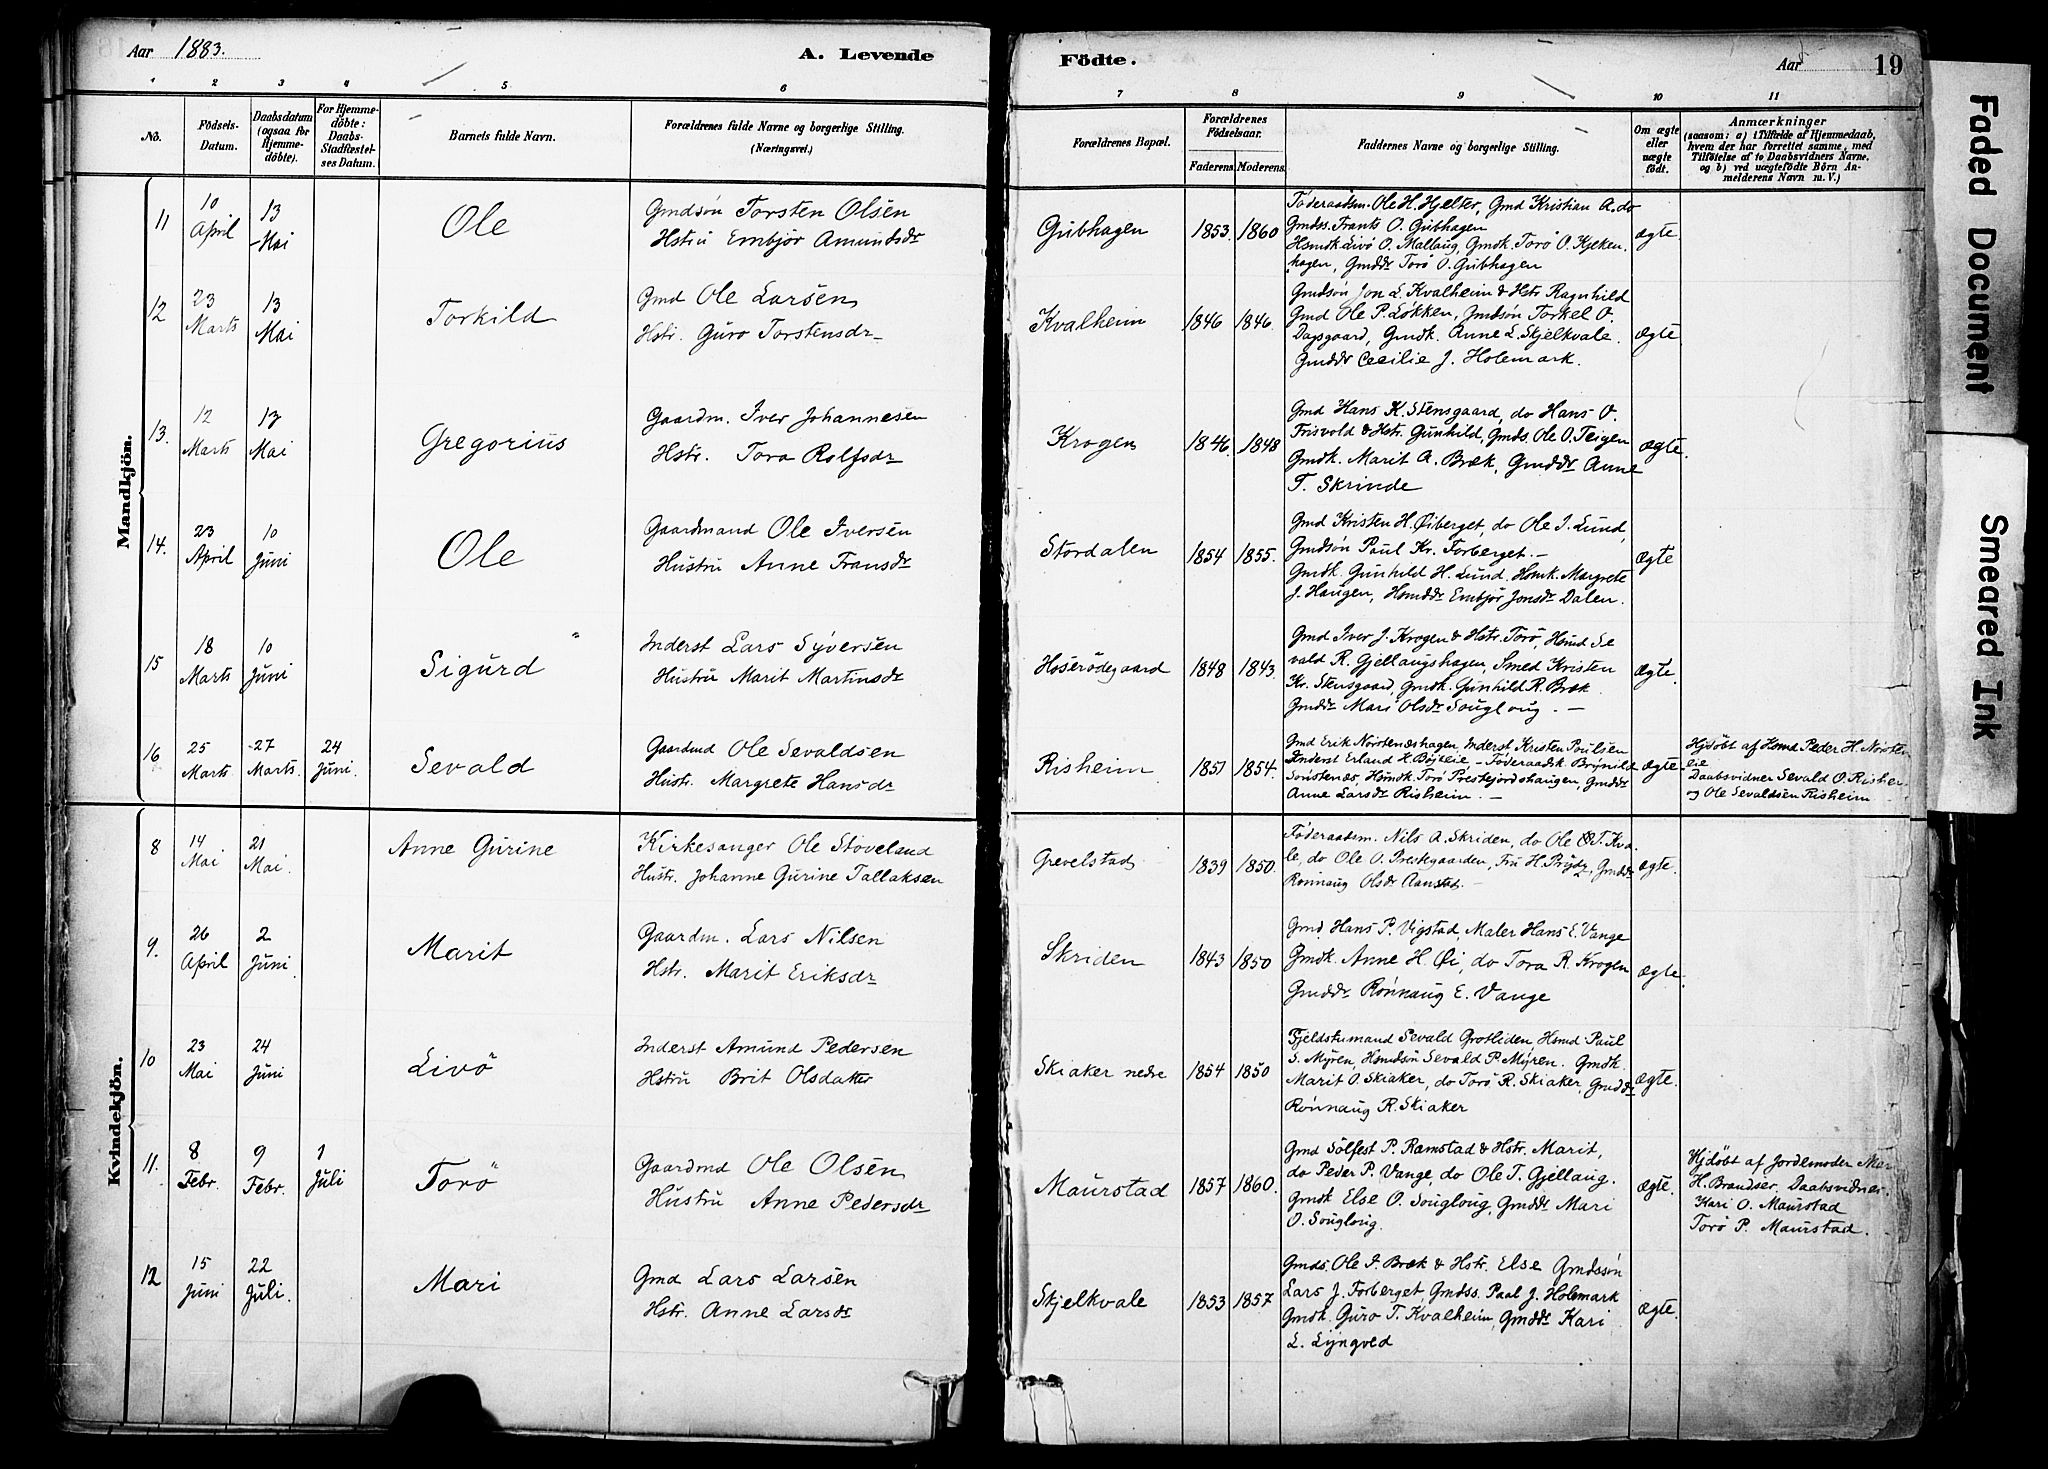 Aar 1883.
A. Levende
Födte.
Aar
19
1 2 3 4 5 6 7 8 9 10 11
Nö.
Födsels-
Datum.
Daabsdatum
(ogsaa for
Hjemme-
döbte).
For Hjemme-
döbte:
Daabs-
Stadfæstel-
ses Datum.
Barnets fulde Navn.
Forældrenes fulde Navne og borgerlige Stilling.
(Næringsvei.)
Forældrenes Bopæl.
Forældrenes
Födselsaar.
Faderens. Moderens.
Faddernes Navne og borgerlige Stilling.
Om ægte
eller
uægte
födt.
Anmærkninger
(saasom: a) i Tilfælde af Hjemmedaab,
hvem der har forrettet samme, med
Tilföielse af to Daabsvidners Navne.
og b) ved uægtefödte Börn An-
melderens Navn m. V.)
Mandkjön.
11
10
April
13
Mai
Ole
Gmdsøn Torsten Olsen
Hstru Embjør Amundsdr
Gubhagen
1853. 1860
Føderaadsm. Ole H. Hjelter, Gmd Kristian A. do
Gmdss. Frants O. Gubhagen
Hsmdk Livø O. Mallaug, Gmdk. Torø O. Kjeken
hagen, Gmddr Torø O. Gubhagen
ægte.
12
23
Marts
13
Mai
Torkild
Gmd Ole Larsen
Hstr. Guro Torstensdr
Kvalheim
1846 1846.
Gmdsøn Jon L. Kvalheim & Hstr Ragnhild
Gmd Ole P. Løkken, Gmdsøn Torkel O.
Dagsgaard, Gmdk. Anne L. Skjelkvale.
Gmddr Cecilie J. Holemark.
ægte
13.
12
Marts
13
Mai
Gregorius
Gaardm. Iver Johannesen
Hstr. Tora Rolfsdr
Krogen
1846. 1848
Gmd Hans K. Stensgaard, do Hans O.
Frisvold & Hstr. Gunhild, Gmds. Ole O. Teigen
Gmdk. Marit A. Bræk, Gmddr Anne
T. Skrinde
ægte.
14.
23
April
10
Juni
Ole
Gaardmand Ole Iversen
Hustru Anne Fransdr
Stordalen
1854 1855.
Gmd Kristen H. Øiberget, do Ole I. Lund,
Gmdsøn Paul Kr. Forberget.
Gmdk. Gunhild H. Lund. Hsmk. Margrete
J. Haugen, Hsmddr Embjør Jonsdr Dalen.
ægte
15
18
Marts
10
Juni
Sigurd
Inderst Lars Syversen
Hustru Marit Martinsdr
Hoserødegaard
1848 1843.
Gmd Iver J. Krogen & Hstr. Torø, Hsmd Se
vald R. Gjellaugshagen, Smed Kristen
Kr. Stensgaard, Gmdk. Gunhild R. Bræk
Gmddr Mari Olsdr Sougloug.
ægte.
16
25
Marts
27
Marts.
24
Juni.
Sevald
Gaardmd Ole Sevaldsen
Hustr. Margrete Hansdr
Risheim
1851 1854.
Gmd Erik Norstenæshagen, Inderst Kristen Poulsen
Inderst Erland H. Bøkleie, Føderaadsk. Brynild
Sorstenæs, Hsmdk Torø Prestejordshaugen, Gmddr
Anne Larsdr Risheim.
ægte
Hjdøbt af Hsmd Peder H. Norsten
eie
Daabsvidner Sevald O. Rishei
og Ole Sevaldsen Risheim
Kvindekjön.
8
14
Mai
21
Mai.
Anne Gurine
Kirkesanger Ole Stoveland
Hustr. Johanne Gurine Tallaksen
Grevelstad
1839 1850.
Føderaadsm. Nils A. Skriden, do Ole O.T. Kva
le, do Ole O. Prestegaarden, Fru H. Brydz, Gmddr
Rønnaug Olsdr Aanstad.
ægte.
9.
26
April
2
Juni
Marit
Gaardm. Lars Nilsen
Hstr. Marit Eriksdr
Skriden
1843 1850
Gmd. Hans P. Vigstad, Maler Hans E. Vange
Gmdk. Anne H. Øi, do Tora R. Krogen
Gmddr Rønnaug E. Vange
ægte.
10
23
Mai
24
Juni
Livø
Inderst Amund Pedersen
Hstru Brit Olsdatter
Skiaker nedre
1854 1850
Fjeldstumand Sevald Grotliden, Hsmd Paul
S. Myren, Hsmdsøn Sevald P. Myren. Gmdk.
Marit O. Skiaker, do Torø R. Skiaker, Gmddr
Rønnaug R. Skiaker
ægte.
11.
8
Febr.
9
Febr.
1
Juli
Torø
Gaardmd Ole Olsen
Hustru Anne Pedersdr
Maurstad
1857 1860.
Gmd Sølfest P. Ramstad & Hstr. Marit,
do Peder P. Vange, do Ole T. Gjellaug.
Gmdk Else O. Sougloug, Gmddr Mari
O. Souglong.
ægte.
Hjdøbt af Jordemoder Mar
H. Brandser, Daabsvidner.
Kari O. Maurstad
Torø P. Maurstad.
12
15
Juni
22
Juli.
Mari
Gmd Lars Larsen
Hstr. Anne Larsdr
Skjelkvale
1853 1857
Gmds. Ole I. Bræk & Hstr. Else Gmdssøn
Lars J. Forberget, Gmdss. Paal J. Holemark
Gmdk. Guro T. Kvalheim, Gmddr Kari
L. Lyngved
ægte.
Faded Document
Smeared Ink